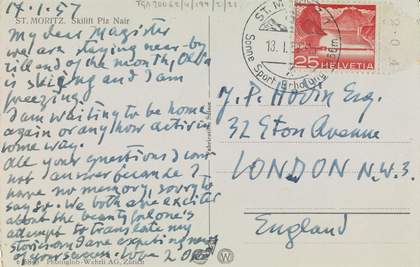 17.1.57
TGA 20062/4/194/2/21
ST. MORITZ. Skilift Piz Nair
My dear Magister
we are staying near-by
till end of the month, Olda
is skiing and I am
freezing!
I am waiting to be home
again or anyhow active in
some way.
All your questions I can
not answer because I
have no memory, sorry to
say so. We both are excited
about the beauty
attempt to translate my
story and are expecting news
of your
8840 Photoglob-Wehrli AG, Zürich
ST. MORITZ
13.I.57
Sonne Sport Erholung
25 HELVETIA
J. P. Hodin Esq.
32 Eton Avenue
LONDON N.W.3.
England